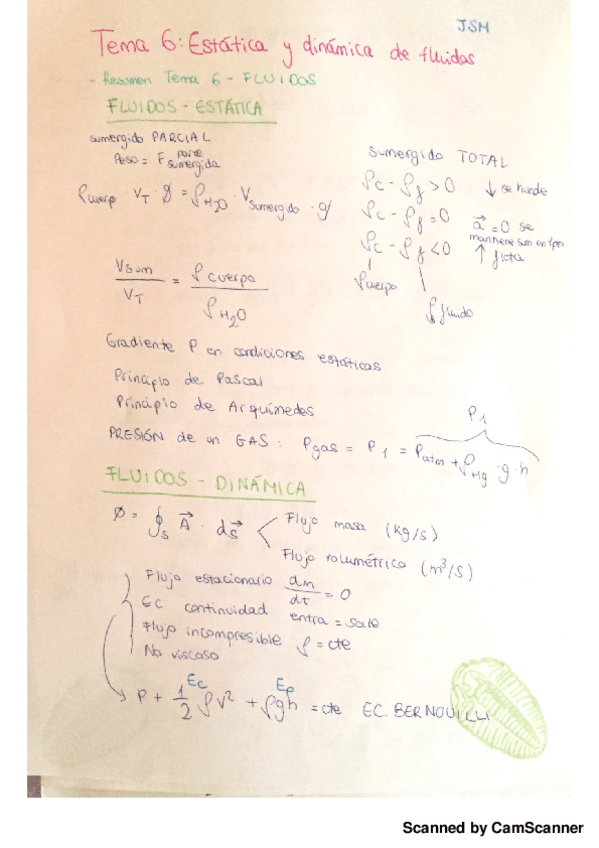 JSM
Tema 6: Estática y dinámica de fluidos
- Resumen Tema 6 - FLUIDOS
FLUIDOS - ESTÁTICA
sumergido PARCIAL
Peso = F parte sumergida
ρcuerpo · V_T · g = ρ_H2O · V_sumergido · g
V_sum / V_T = ρ cuerpo / ρ_H2O
sumergido TOTAL
ρc - ρf > 0 ↓ se hunde
ρc - ρf = 0 a⃗ = 0 se mantiene sum en tpo
ρc - ρf < 0 ↑ flota
ρcuerpo
ρ fluido
Gradiente P en condiciones estáticas
Principio de Pascal
Principio de Arquímedes
P1
PRESIÓN de un GAS: Pgas = P1 = Patm + ρHg · g · h
FLUIDOS - DINÁMICA
Ø = ∮s A⃗ · ds⃗ < Flujo masa (kg/s)
Flujo volumétrico (m³/s)
Flujo estacionario dm/dt = 0
Ec continuidad entra = sale
Flujo incompresible ρ = cte
No viscoso
Ec Ep
P + 1/2 ρv² + ρgh = cte EC. BERNOUILLI
Scanned by CamScanner